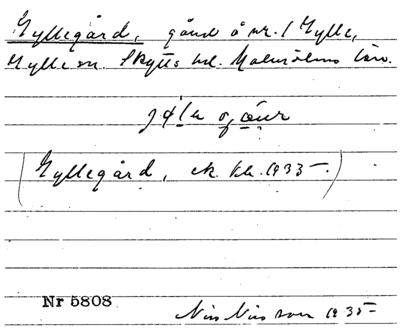 Gyllegård, gård å nr. 1 Gylle,
Gylle sn. Skytts hd. Malmöhus län.
(Gyllegård, ek. kh. 1935.)
Nr 5808
Nils Nilsson 1935